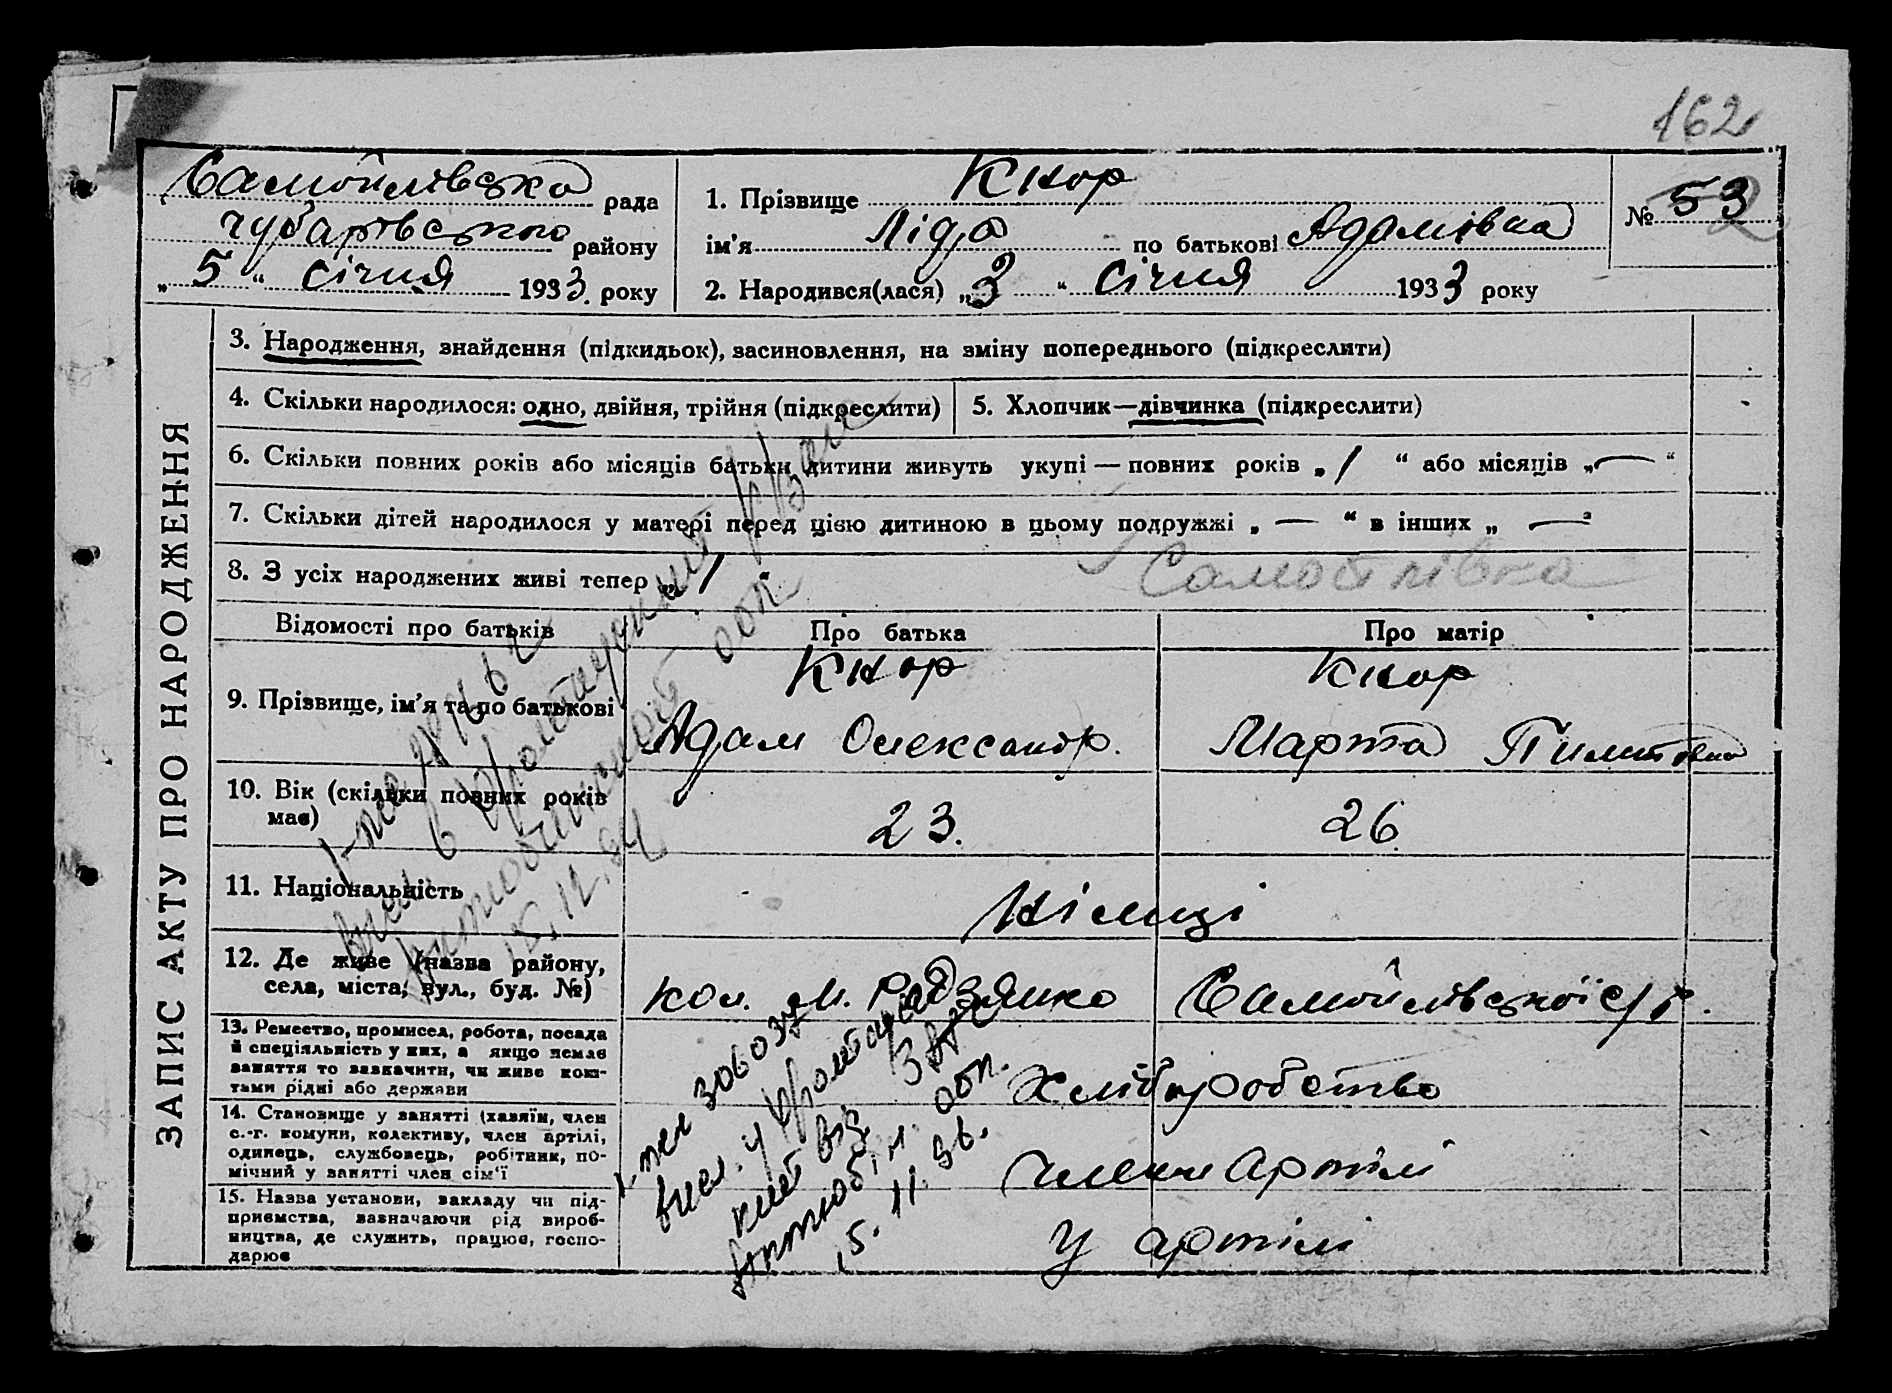 162
Самойлівська рада
Чубарівського району
„ 5 “ січня 1933. року
1. Прізвище Кнор
ім'я Ліда по батькові Адамівна
2. Народився(лася) „ 3 “ січня 1933 року
№ 53
2
ЗАПИС АКТУ ПРО НАРОДЖЕННЯ
3. Народження, знайдення (підкидьок), засиновлення, на зміну попереднього (підкреслити)
4. Скільки народилося: одно, двійня, трійня (підкреслити)
5. Хлопчик—дівчинка (підкреслити)
6. Скільки повних років або місяців батьки дитини живуть укупі — повних років „ 1 “ або місяців „ — “
7. Скільки дітей народилося у матері перед цією дитиною в цьому подружжі „ — “ в інших „ — “
8. З усіх народжених живі тепер „ 1 “
Самойлівка
Відомості про батьків
Про батька
Про матір
9. Прізвище, ім'я та по батькові
Кнор
Адам Олександр.
Кнор
Марта
10. Вік (скільки повних років
має)
23.
26
11. Національність
Німці
12. Де живе (назва району,
села, міста, вул., буд. №)
кол. М. Радзянко
Самойлівської с/р.
13. Ремество, промисел, робота, посада
й спеціяльність у них, а якщо немає
заняття то зазначити, чи живе кош-
тами рідні або держави
Хліборобство
14. Становище у занятті (хазяїн, член
с.-г. комуни, колективу, член артілі,
одинець, службовець, робітник, по-
мічний у занятті член сім'ї
члени артілі
15. Назва установи, закладу чи під-
приємства, зазначаючи рід вироб-
ництва, де служить, працює, госпо-
дарює
У артілі
15.12.
15. 11. 36.